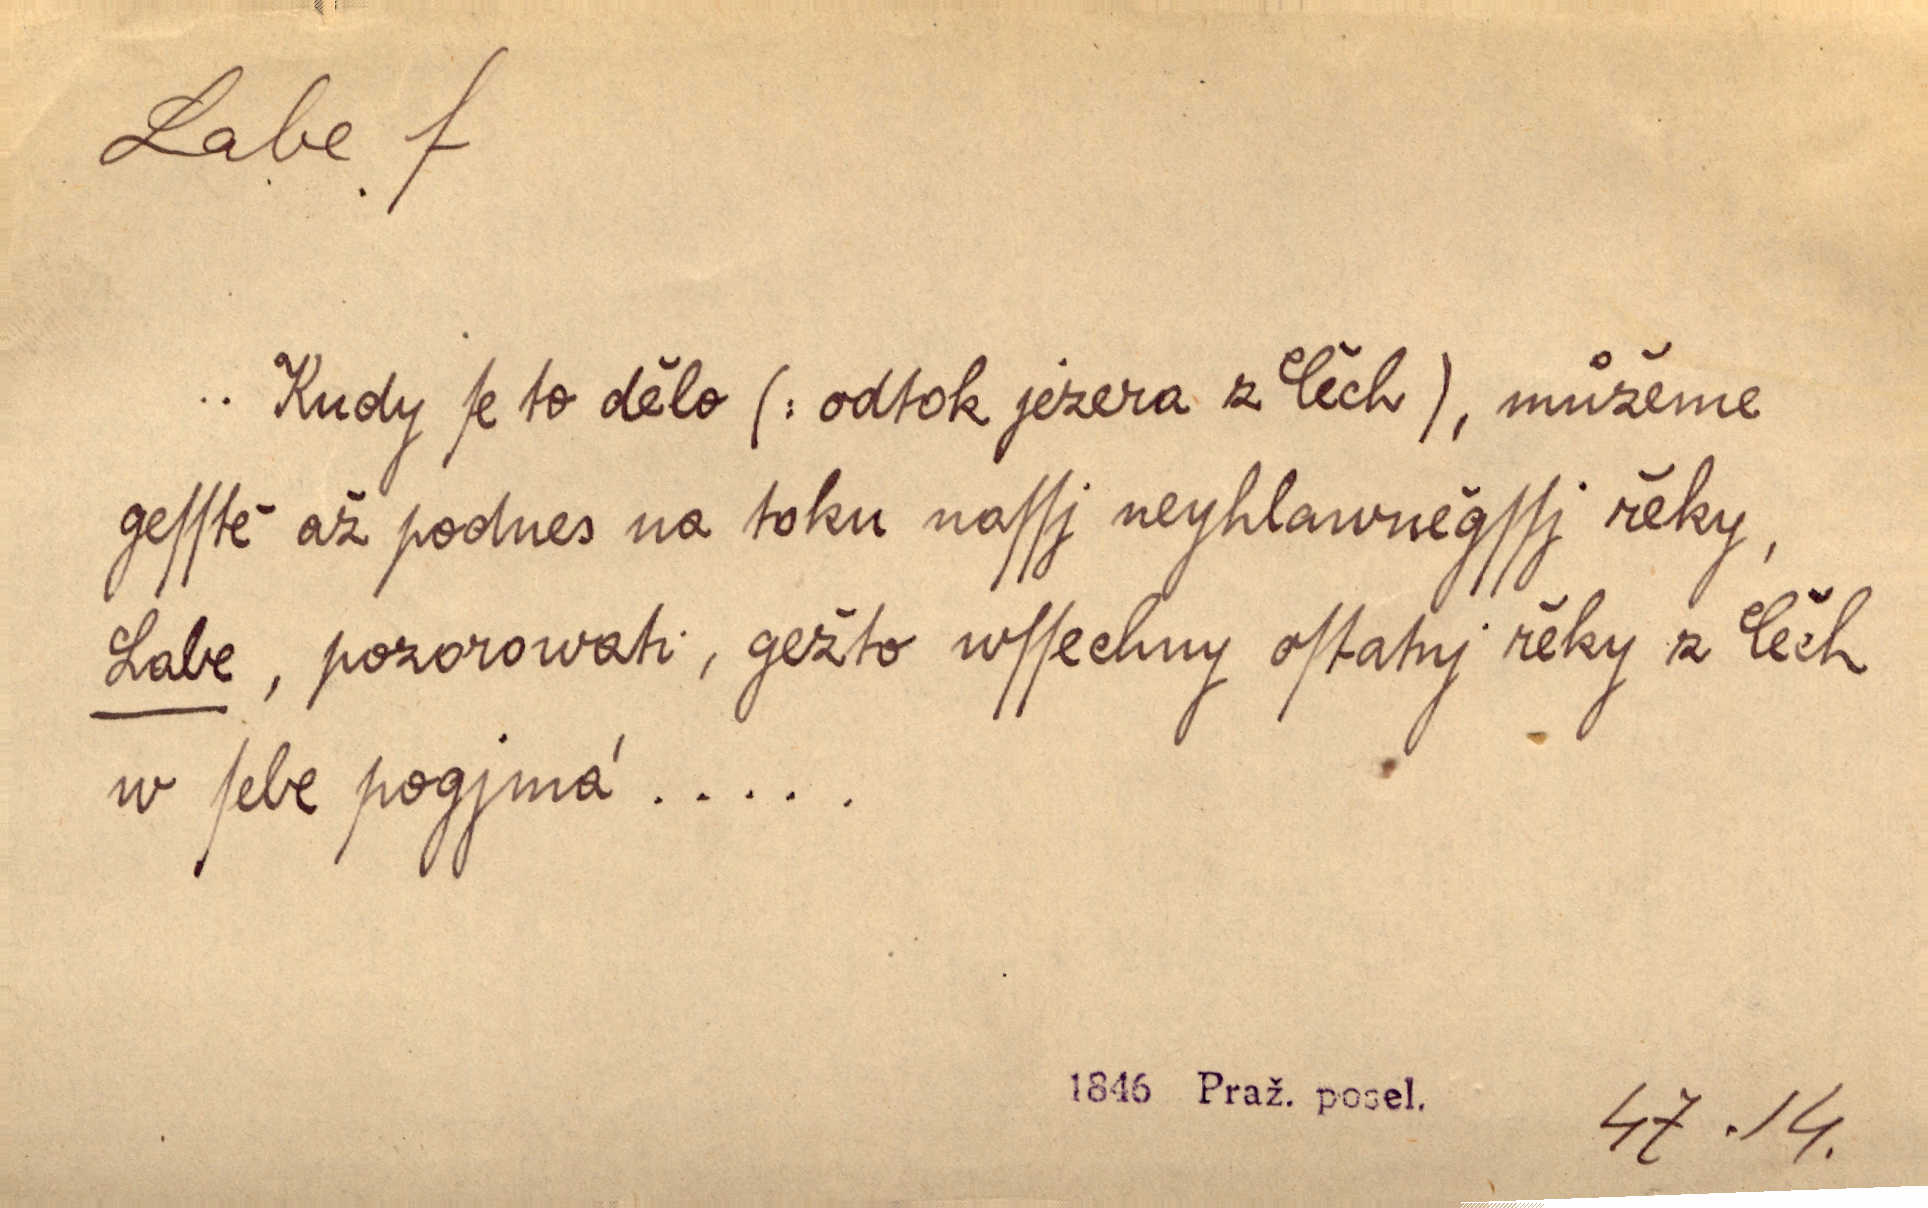 Labe f
.. Kudy ſe to dělo (: odtok jezera z Čech), můžeme
geſſtě až podnes na toku naſſj neyhlawněgſſj řeky,
Labe, pozorowati, gežto wſſechny oſtatnj řeky z Čech
w ſebe pogjmá .....
1846 Praž. posel. 47.14.